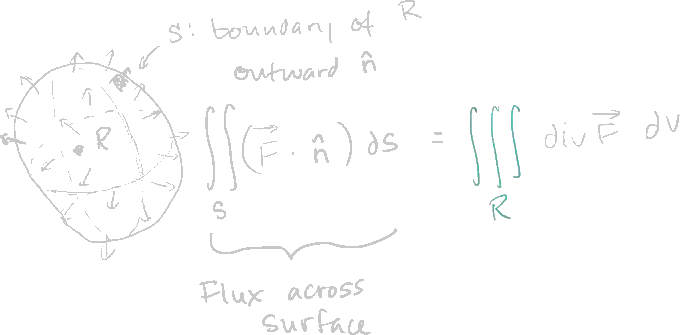 S: boundary of R
outward n̂
R
∬_S (F⃗ · n̂) dS = ∭_R div F⃗ dV
Flux across
surface